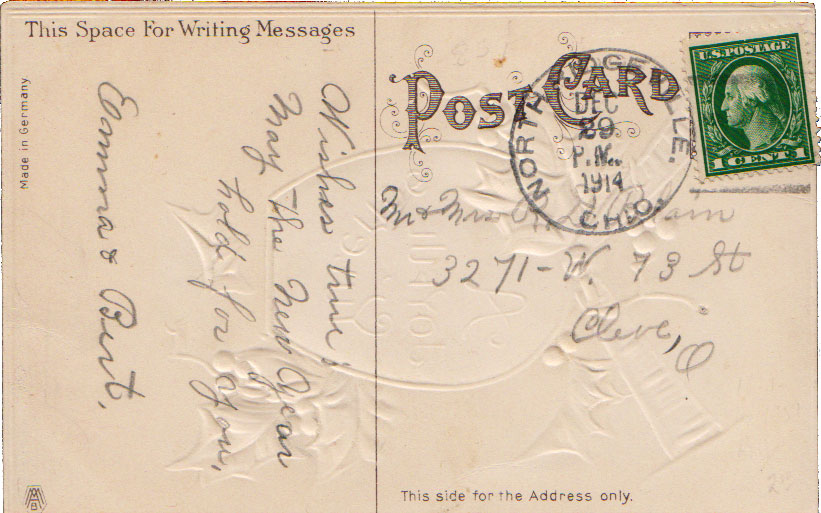 This Space For Writing Messages
Made in Germany
Wishes true,
May the New Year
hold for you,
Emma & Bert.
POST CARD
NORTH RIDGEVILLE.
DEC
29
P.M.
1914
OHIO.
U.S. POSTAGE
1 CENT 1
Mr & Mrs
3271-W. 73 St
Cleve, O
This side for the Address only.